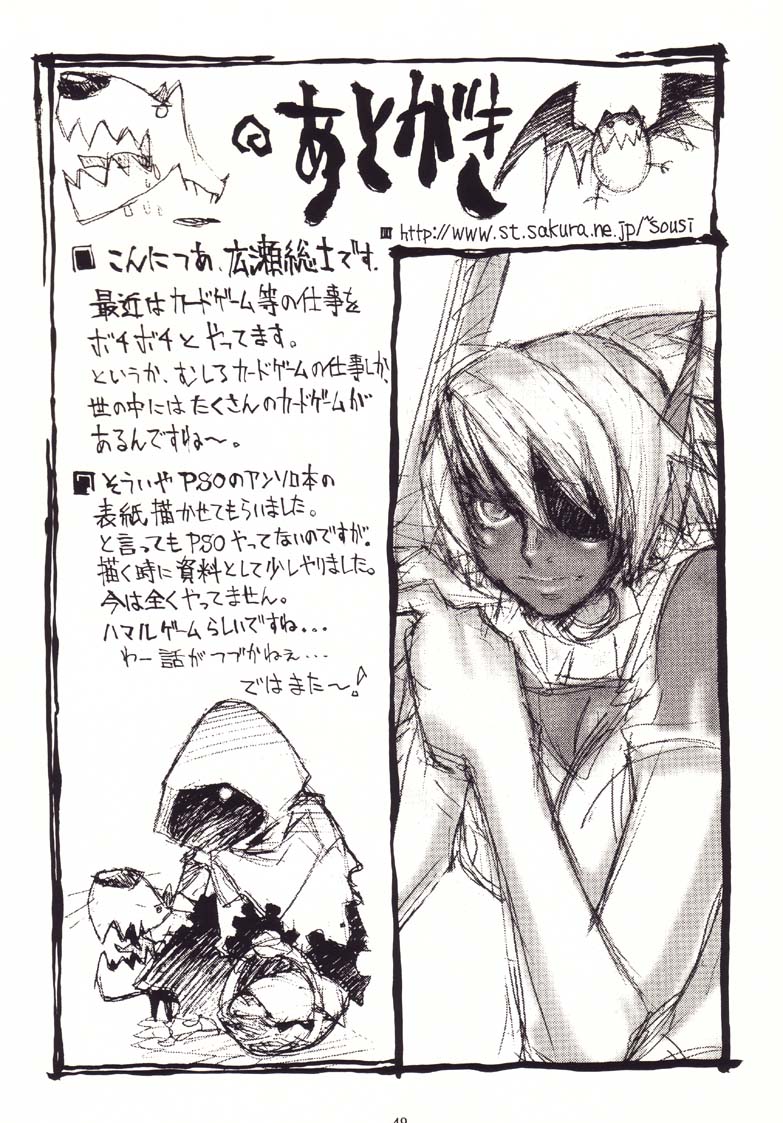 あとがき
http://www.st.sakura.ne.jp/~sousi
こんにつあ、広瀬総士です。
最近はカードゲーム等の仕事を
ボチボチとやってます。
というか、むしろカードゲームの仕事しか。
世の中にはたくさんのカードゲームが
あるんですね〜。
そういやPSOのアンソロ本の
表紙描かせてもらいました。
と言ってもPSOやってないのですが。
描く時に資料として少しやりました。
今は全くやってません。
ハマルゲームらしいですね...
わー話がつづかねぇ...
ではまた〜!
49